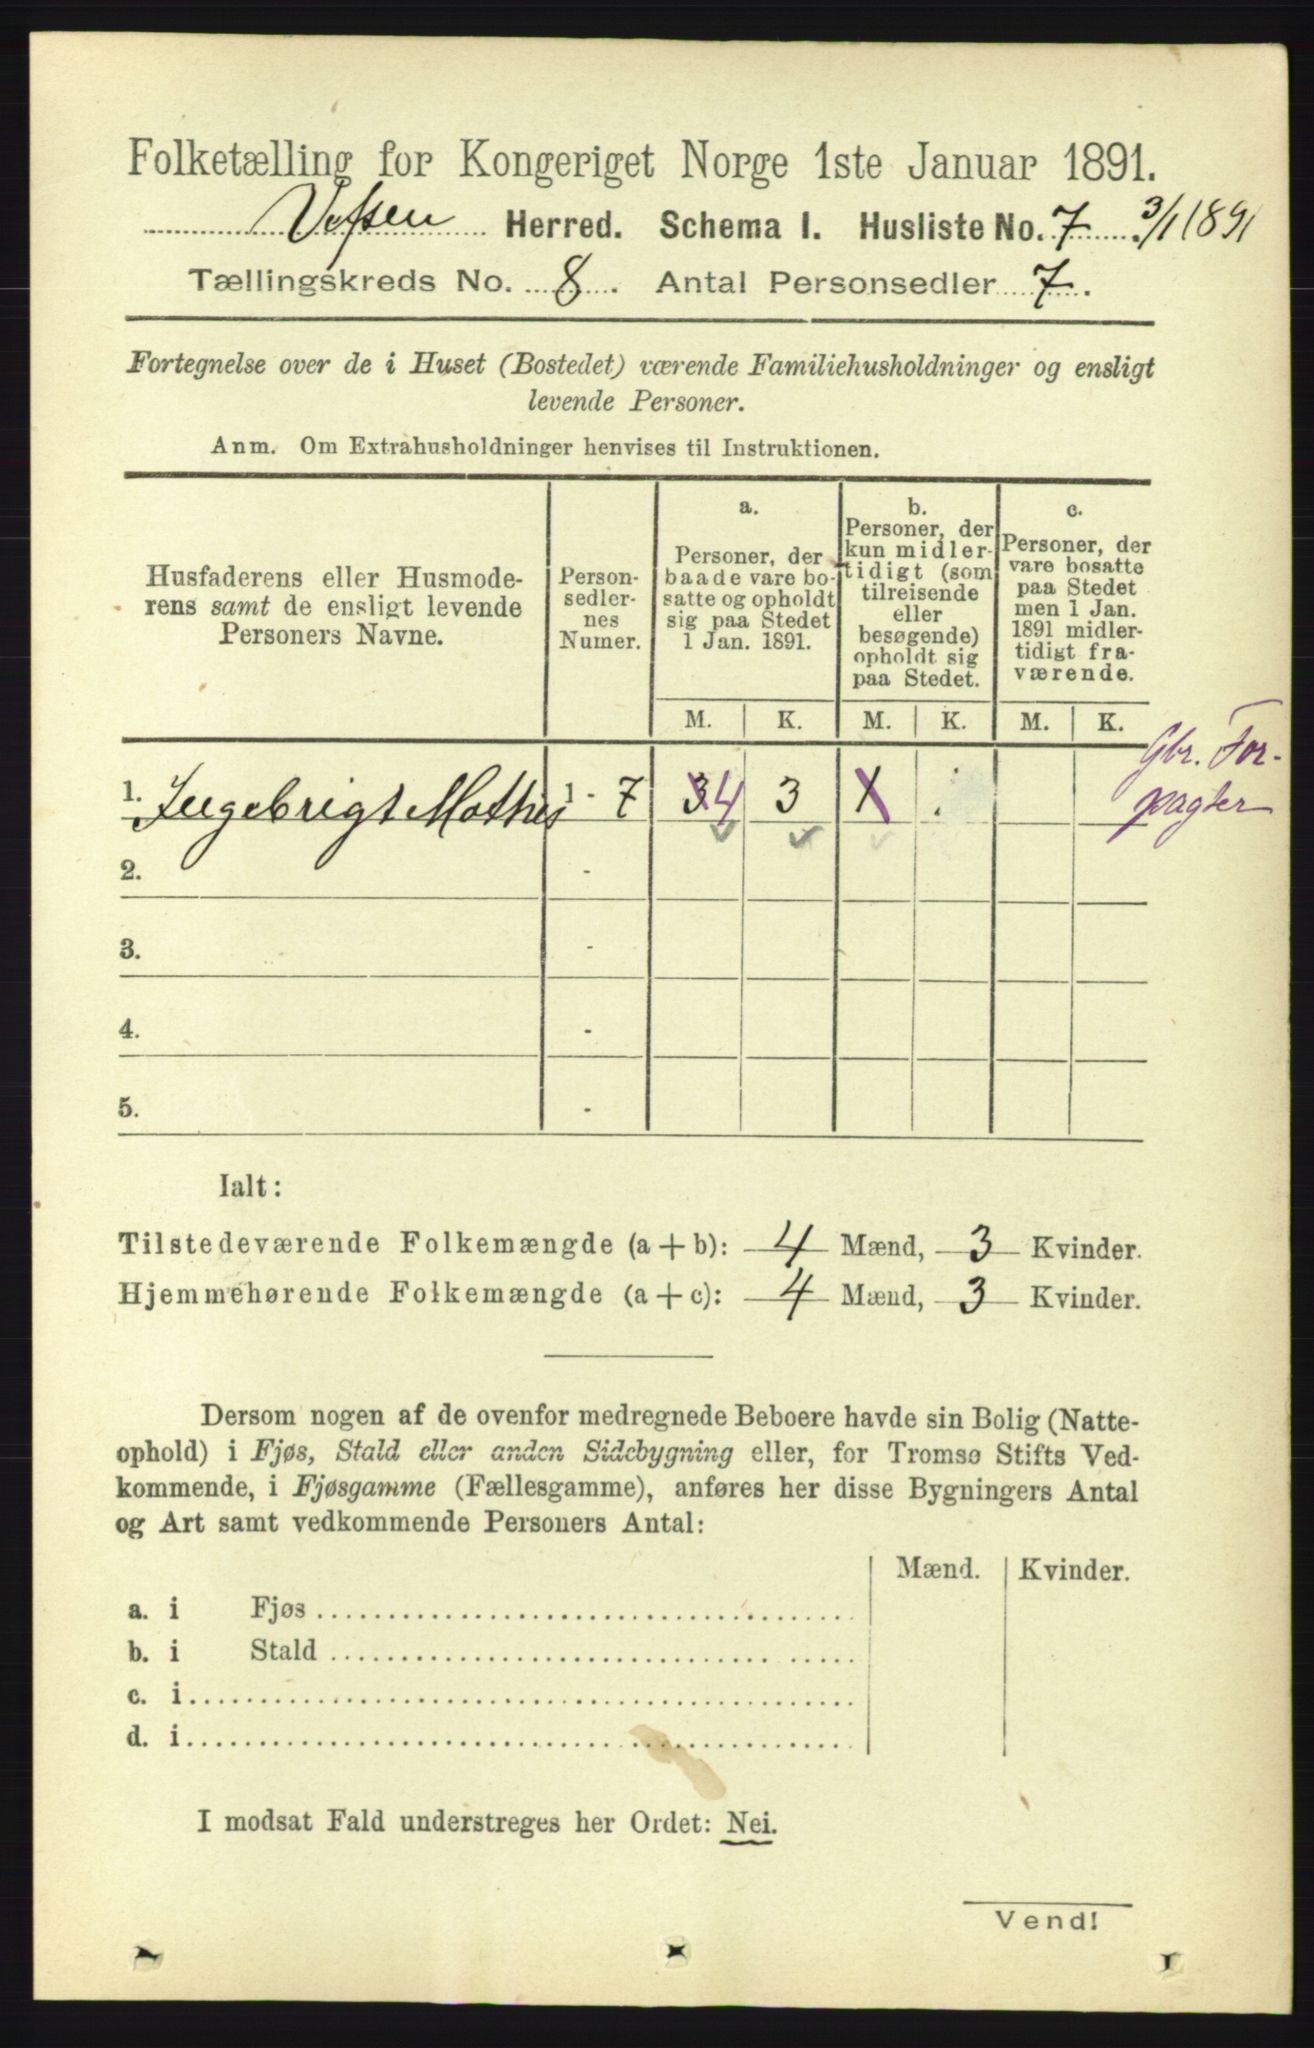 Folketælling for Kongeriget Norge 1ste Januar 1891.
Vefsen Herred. Schema I. Husliste No. 7. 3/1 1891
Tællingskreds No. 8. Antal Personsedler 7.
Fortegnelse over de i Huset (Bostedet) værende Familiehusholdninger og ensligt
levende Personer.
Anm. Om Extrahusholdninger henvises til Instruktionen.
Husfaderens eller Husmode-
rens samt de ensligt levende
Personers Navne.
Person-
sedler-
nes
Numer.
a.
Personer, der
baade vare bo-
satte og opholdt
sig paa Stedet
1 Jan. 1891.
b.
Personer, der
kun midler-
tidigt (som
tilreisende
eller
besøgende)
opholdt sig
paa Stedet.
c.
Personer, der
vare bosatte
paa Stedet
men 1 Jan.
1891 midler-
tidigt fra-
værende.
M. K. M. K. M. K.
Gbr. For-
pagter
1. Ingebrigt Mathis 1 - 7 3 4 3 1
2. -
3. -
4. -
5. -
Ialt:
Tilstedeværende Folkemængde (a + b): 4 Mænd, 3 Kvinder.
Hjemmehørende Folkemængde (a + c): 4 Mænd, 3 Kvinder.
Dersom nogen af de ovenfor medregnede Beboere havde sin Bolig (Natte-
ophold) i Fjøs, Stald eller anden Sidebygning eller, for Tromsø Stifts Ved-
kommende, i Fjøsgamme (Fællesgamme), anføres her disse Bygningers Antal
og Art samt vedkommende Personers Antal:
Mænd. Kvinder.
a. i Fjøs
b. i Stald
c. i
d. i
I modsat Fald understreges her Ordet: Nei.
Vend!